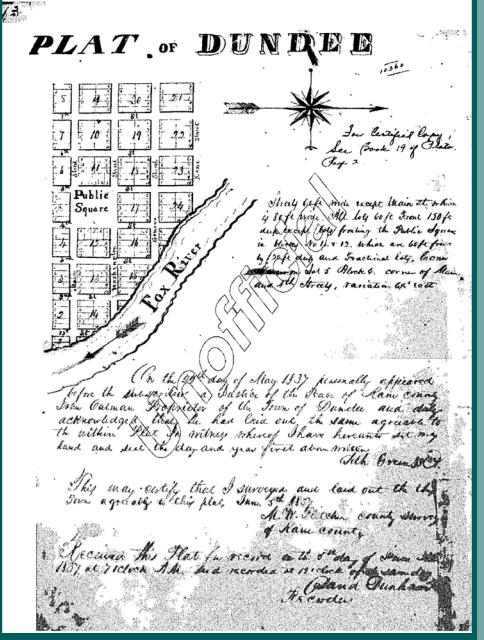 PLAT OF DUNDEE
10360
For Certified Copy,
See Book 19 of Plats.
Page 2
5 19 20 21
7 10 19 22
6 11 15 23
Public
Square 17 24
4 12 16
3 13 15
2 14
Fox River
Washington
Streets 60 ft wide except Main St. which
is 80 ft wide. All lots 60 ft Front 150 ft
deep except lots fronting the Public Square
in Blocks No 11 & 12. which are 60 ft front
by 120 ft deep and Fractional lots, Corner
Lot 5 Block 6. corner of Main
and Streets, variation East
Unofficial
On the 29th day of May 1837 personally appeared
before the subscriber a Justice of the Peace of Kane county
John Oatman Proprietor of the Town of Dundee and duly
acknowledged that he had laid out the same agreeable to
the within Plat. In witness whereof I have hereunto set my
hand and seal the day and year first above written
Seth Green
This may certify that I surveyed and laid out the
Town agreeably to this plat, June 5th 1837
M. W. Fletcher county survr
of Kane county
Received this Plat for record on the 5th day of June
1837 at 7 o'clock A.M. and recorded at 12 o'clock of the same day
David Dunham
Recorder